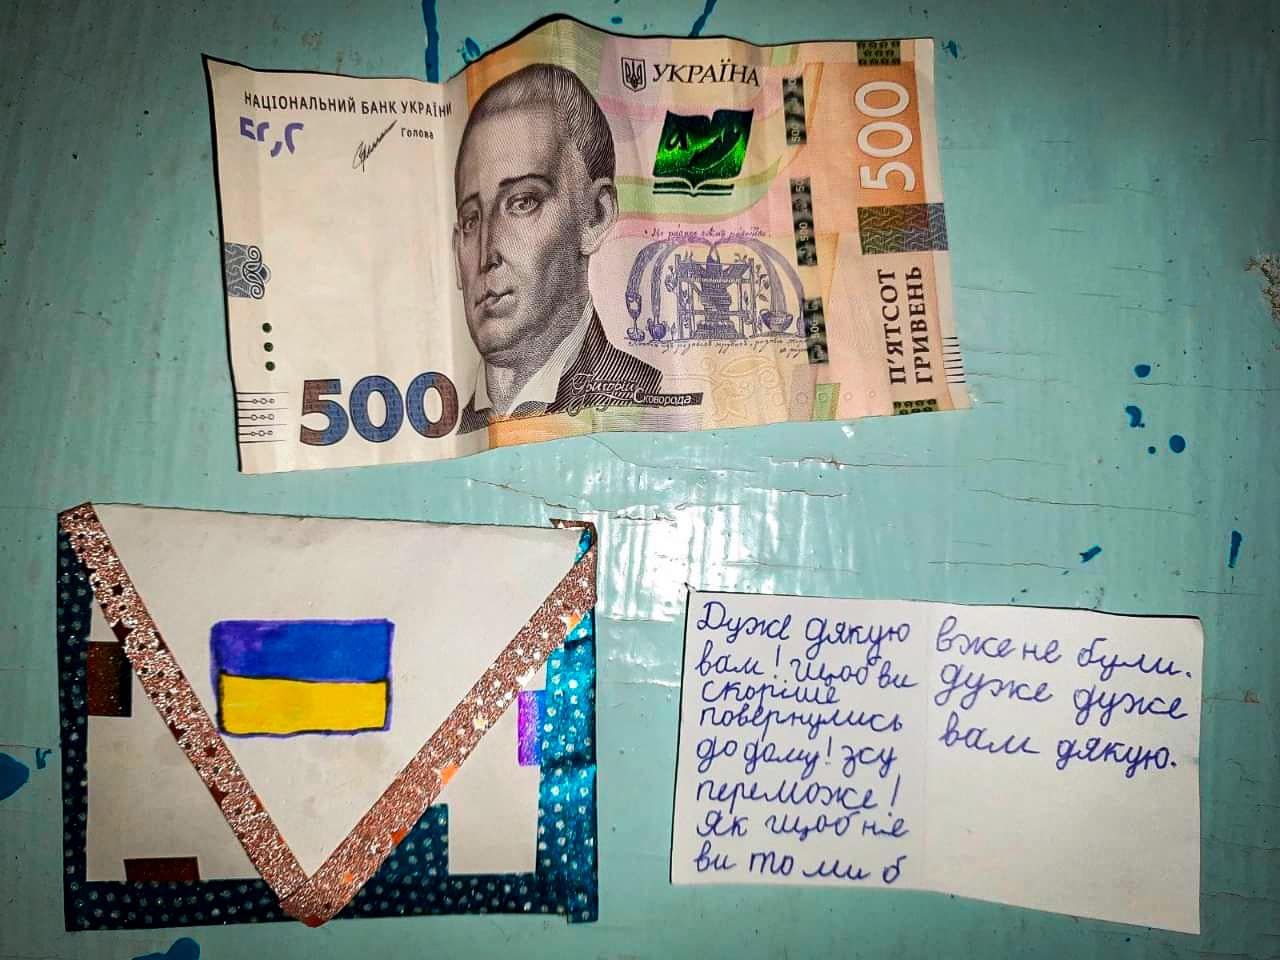 НАЦІОНАЛЬНИЙ БАНК УКРАЇНИ
Голова
УКРАЇНА
500
П'ЯТСОТ
ГРИВЕНЬ
500
Григорій
Сковорода
Дуже дякую
вам! Щоб ви
скоріше
повернулись
додому! зсу
переможе!
Як щоб не
ви то ми б
вже не були.
дуже дуже
вам дякую.